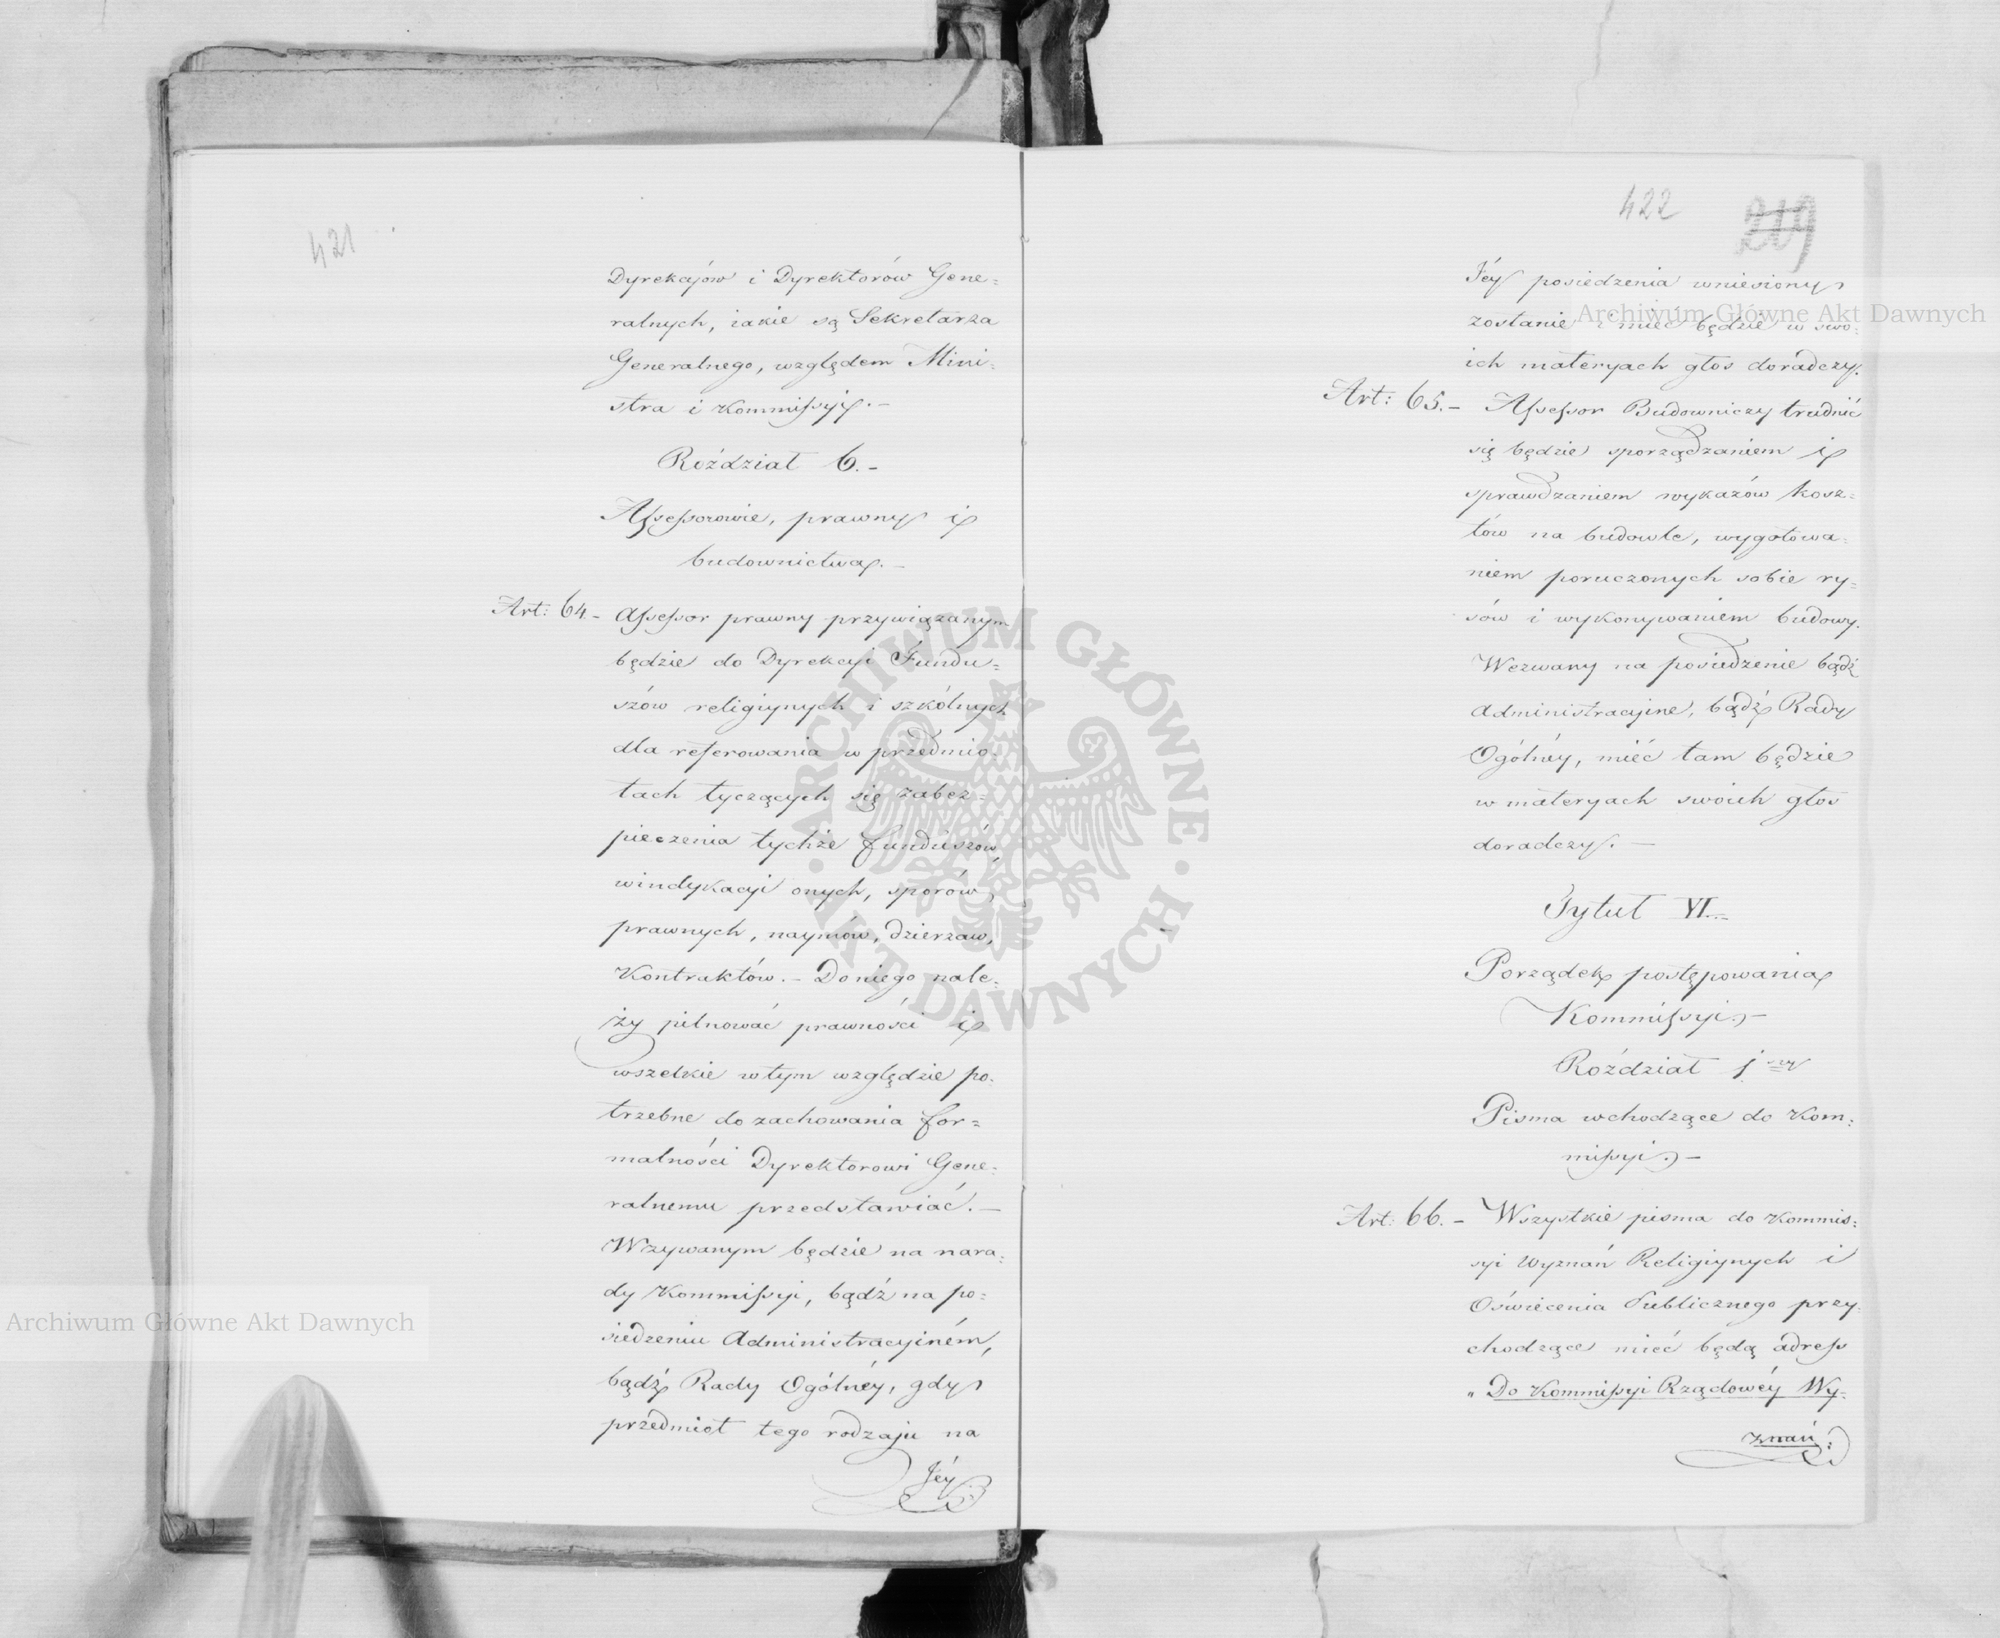 421
Dyrekcjów i Dyrektorów Gene=
ralnych, iakie są Sekretarza
Generalnego, względem Mini=
stra i Kommissyi.–
Roździał 6.–
Assessorowie, prawny i
budownictwa.–
Art: 64.– Assessor prawny przywiązanym
będzie do Dyrekcyi Fundu=
szów religiynych i szkólnych
dla referowania w przedmio=
tach tyczących się zabez=
pieczenia tychże funduszów
windykacyi onych, sporów
prawnych, naymów, dzierzaw,
Kontraktów.– Do niego nale=
ży pilnować prawności i
wszelkie w tym względzie po=
trzebne do zachowania for=
malności Dyrektorowi Gene=
ralnemu przedstawiać.–
Wzywanym będzie na nara=
dy Kommissyi, bądź na po=
siedzeniu Administracyiném,
bądź Rady Ogólnéy, gdy
przedmiot tego rodzaju na
Jéy
422
219
Jéy posiedzenia wniesiony
zostanie i mieć będzie w swo=
ich materyach głos doradczy.
Art: 65.– Assessor Budowniczy trudnić
się będzie sporządzaniem i
sprawdzaniem wykazów kosz=
tów na budowle, wygotowa=
niem poruczonych sobie ry=
sów i wykonywaniem budowy.
Wezwany na posiedzenie bądź
Administracyine, bądź Rady
Ogólnéy, mieć tam będzie
w materyach swoich głos
doradczy.–
Tytuł VI.–
Porządek postępowania
Kommissyi.–
Roździał 1szy
Pisma wchodzące do Kom=
missyi.–
Art: 66.– Wszystkie pisma do Kommis=
syi Wyznań Religiynych i
Oświecenia Publicznego przy=
chodzące mieć będą adress
„Do Kommissyi Rządowéy Wy=
znań:
Archiwum Główne Akt Dawnych
Archiwum Główne Akt Dawnych
ARCHIWUM GŁÓWNE · AKT DAWNYCH ·